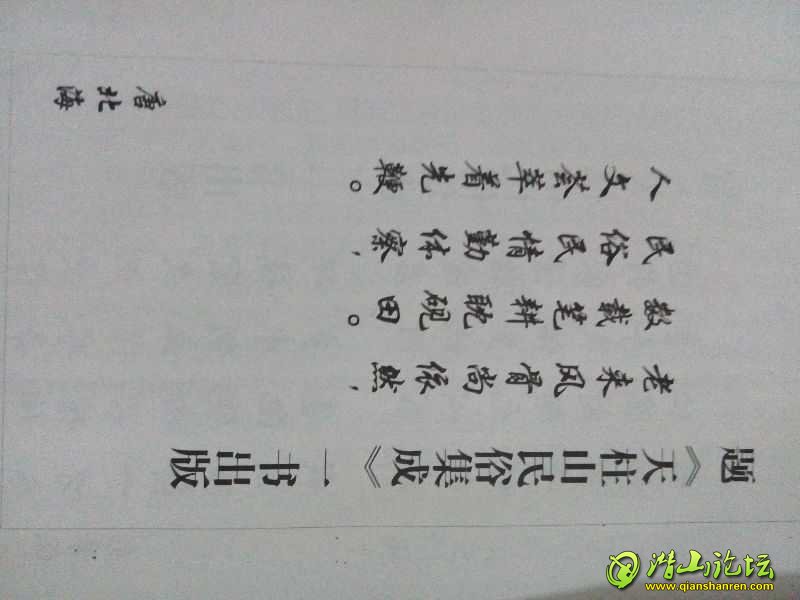 题《天柱山民俗集成》一书出版
老来风骨尚依然,
数载笔耕耽砚田。
民俗民情勤体察,
人文荟萃着先鞭。
唐北海
潜山论坛
www.qianshanren.com